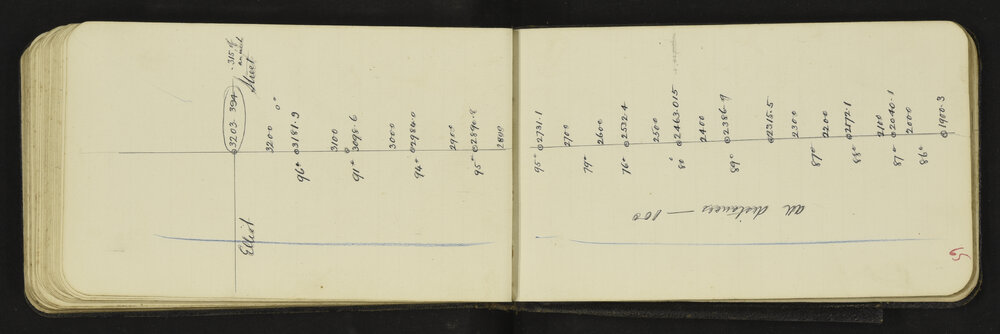 ·315 of
3203·394
Elliot Street
3200 0°
3181·9
96°
3100
3098·6
91°
3000
2980·0
94°
2900
2890·8
95°
2800
2731·1
95°
2700
79°
2600
2532·4
76°
2500
2463·015
80°
2400
2386·9
89°
2315·5
2300
87°
2200
2172·1
88°
2100
2040·1
87°
2000
86°
1900·3
all distances — 100
5